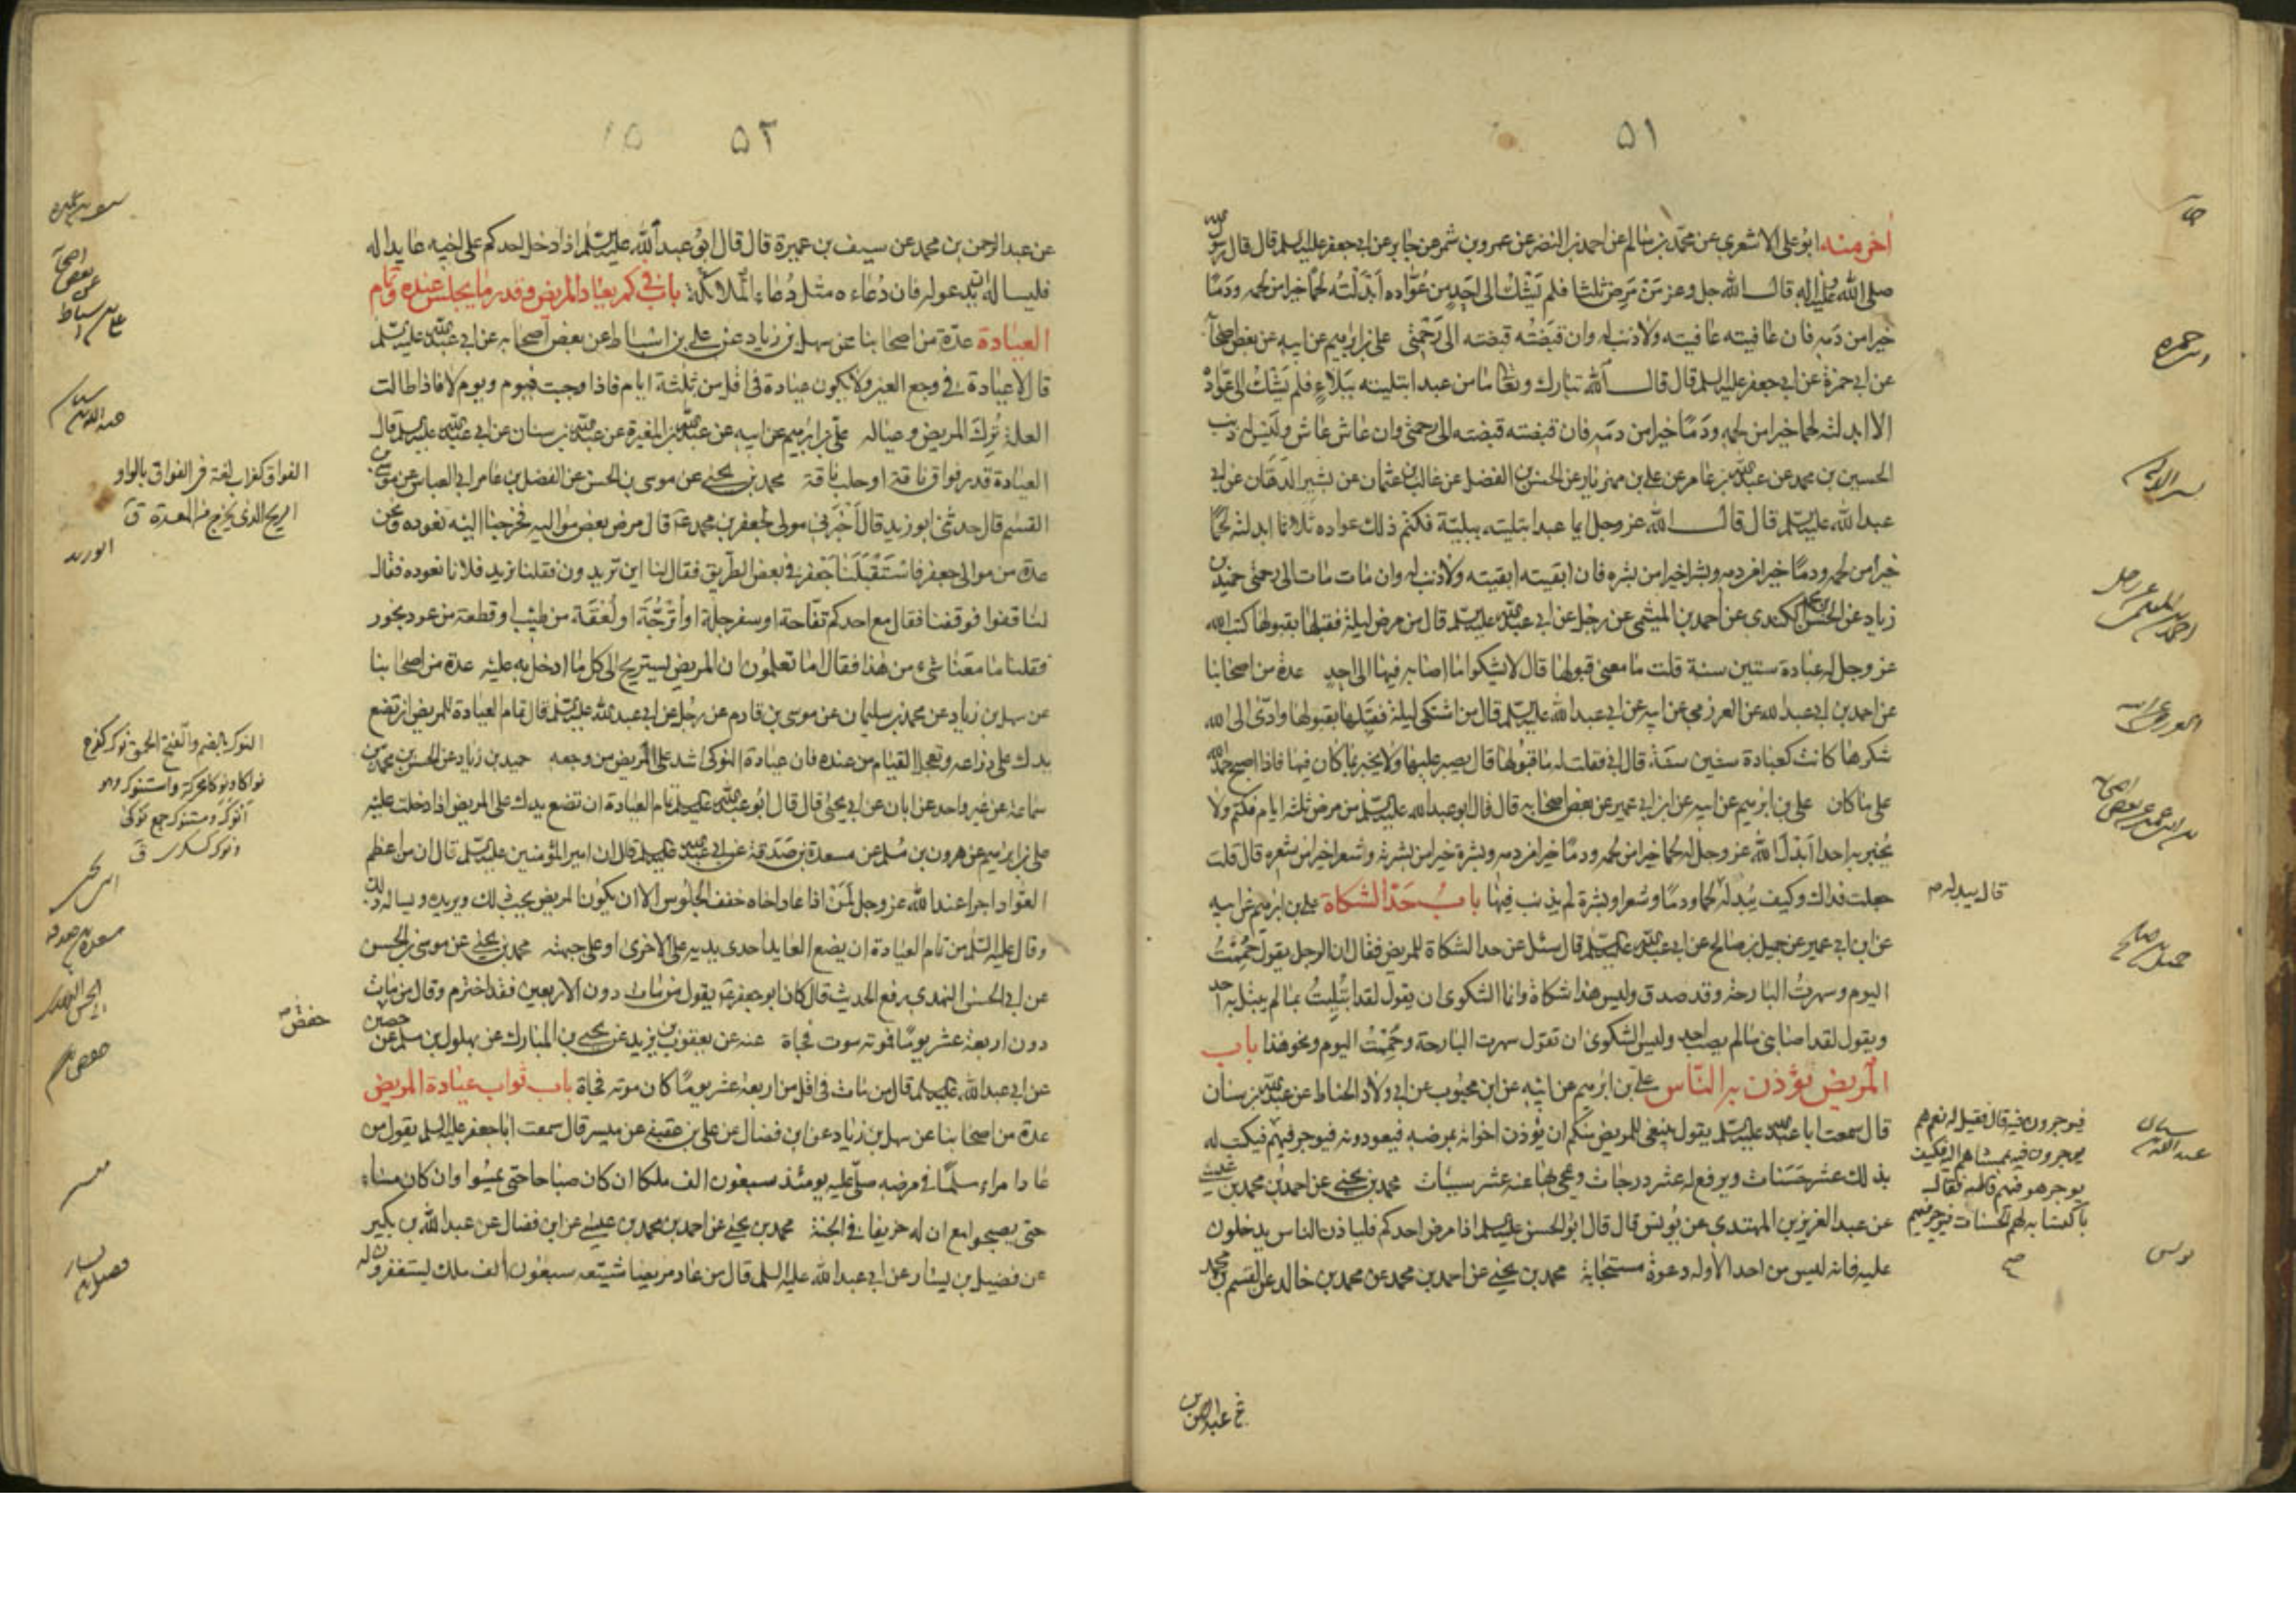 ٥١
آخر منه ابو علي الاشعري عن محمد بن سالم عن احمد بن النضر عن عمرو بن شمر عن جابر عن ابي جعفر عليه السلم قال قال رسول الله
صلى الله عليه وآله قال الله جل وعز من مرض ثلثا فلم يشك الى احد من عواده ابدلته لحما خيرا من لحمه ودما
خيرا من دمه فان عافيته عافيته ولا ذنب له وان قبضته قبضته الى رحمتي علي بن ابرهيم عن ابيه عن بعض اصحابه
عن ابي حمزة عن ابي جعفر عليه السلم قال قال الله تبارك وتعالى ما من عبد ابتليته ببلاء فلم يشك الى عواده
الا ابدلته لحما خيرا من لحمه ودما خيرا من دمه فان قبضته قبضته الى رحمتي وان عاش عاش وليس له ذنب
الحسين بن محمد عن عبد الله بن عامر عن علي بن مهزيار عن الحسن بن الفضل عن غالب بن عثمان عن بشير الدهان عن ابي
عبد الله عليه السلم قال قال الله عز وجل ايما عبد ابتليته ببلية فكتم ذلك عواده ثلاثا ابدلته لحما
خيرا من لحمه ودما خيرا من دمه وبشرا خيرا من بشره فان ابقيته ابقيته ولا ذنب له وان مات مات الى رحمتي حميد بن
زياد عن الحسن بن محمد الكندي عن احمد بن الميثمي عن رجل عن ابي عبد الله عليه السلم قال من مرض ليلة فقبلها بقبولها كتب الله
عز وجل له عبادة ستين سنة قلت ما معنى قبولها قال لا يشكو ما اصابه فيها الى احد عدة من اصحابنا
عن احمد بن ابي عبد الله عن العرزمي عن ابيه عن ابي عبد الله عليه السلم قال من اشتكى ليلة فقبلها بقبولها وادى الى الله
شكرها كانت كعبادة ستين سنة قال ابي فقلت له ما قبولها قال يصبر عليها ولا يخبر بما كان فيها فاذا اصبح حمد الله
على ما كان علي بن ابرهيم عن ابيه عن ابن ابي عمير عن بعض اصحابه قال قال ابو عبد الله عليه السلم من مرض ثلثة ايام فكتمه ولا
يخبر به احدا ابدل الله عز وجل له لحما خيرا من لحمه ودما خيرا من دمه وبشرة خيرا من بشرته وشعرا خيرا من شعره قال قلت
جعلت فداك وكيف يبدله لحما ودما وشعرا وبشرة لم يذنب فيها باب حد الشكاة علي بن ابرهيم عن ابيه
عن ابن ابي عمير عن جميل بن صالح عن ابي عبد الله عليه السلم قال سئل عن حد الشكاة للمريض فقال ان الرجل يقول حممت
اليوم وسهرت البارحة وقد صدق وليس هذا شكاة وانما الشكوى ان يقول لقد ابتليت بما لم يبتل به احد
ويقول لقد اصابني ما لم يصب احد وليس الشكوى ان تقول سهرت البارحة وحممت اليوم ونحو هذا باب
المريض يؤذن به الناس علي بن ابرهيم عن ابيه عن ابن محبوب عن ابي ولاد الحناط عن عبد الله بن سنان
قال سمعت ابا عبد الله عليه السلم يقول ينبغي للمريض منكم ان يؤذن اخوانه بمرضه فيعودونه فيوجر فيهم فيكتب له
بذلك عشر حسنات ويرفع له عشر درجات ويمحى بها عنه عشر سيئات محمد بن يحيى عن احمد بن محمد بن عيسى
عن عبد العزيز بن المهتدي عن يونس قال قال ابو الحسن عليه السلم اذا مرض احدكم فلياذن الناس يدخلون
عليه فانه ليس من احد الا وله دعوة مستجابة محمد بن يحيى عن احمد بن محمد عن محمد بن خالد عن القسم بن محمد
قال يبدله م
جميل بن صالح
عبد الله بن سنان
يونس
٥٢
عن عبد الرحمن بن محمد عن سيف بن عميرة قال قال ابو عبد الله عليه السلم اذا دخل احدكم على اخيه عايدا له
فليساله يدعو له فان دعاءه مثل دعاء الملائكة باب في كم يعاد المريض وقدر ما يجلس عنده وتمام
العيادة عدة من اصحابنا عن سهل بن زياد عن علي بن اسباط عن بعض اصحابه عن ابي عبد الله عليه السلم
قال لا عيادة في وجع العين ولا يكون عيادة في اقل من ثلثة ايام فاذا وجبت فيوم ويوم لا فاذا طالت
العلة ترك المريض وعياله علي بن ابرهيم عن ابيه عن عبد الله بن المغيرة عن عبد الله بن سنان عن ابي عبد الله عليه السلم قال
العيادة قدر فواق ناقة او حلب ناقة محمد بن يحيى عن موسى بن الحسن عن الفضل بن عامر ابي العباس عن موسى بن
القسم قال حدثني ابو زيد قال اخبرني مولى لجعفر بن محمد ع قال مرض بعض مواليه فخرجنا اليه نعوده ونحن
عدة من موالي جعفر فاستقبلنا جعفر في بعض الطريق فقال لنا اين تريدون فقلنا نريد فلانا نعوده فقال
لنا قفوا فوقفنا فقال مع احدكم تفاحة او سفرجلة او اترجة او لعقة من طيب او قطعة من عود بخور
فقلنا ما معنا شيء من هذا فقال اما تعلمون ان المريض يستريح الى كل ما ادخل به عليه عدة من اصحابنا
عن سهل بن زياد عن محمد بن سليمان عن موسى بن قادم عن رجل عن ابي عبد الله عليه السلم قال تمام العيادة للمريض ان تضع
يدك على ذراعه وتعجل القيام من عنده فان عيادة النوكى اشد على المريض من وجعه حميد بن زياد عن الحسن بن محمد بن
سماعة عن غير واحد عن ابان عن ابي يحيى قال قال ابو عبد الله عليه السلم تمام العيادة ان تضع يدك على المريض اذا دخلت عليه
علي بن ابراهيم عن هرون بن مسلم عن مسعدة بن صدقة عن ابي عبد الله عليه السلم قال ان امير المؤمنين عليه السلم قال ان من اعظم
العواد اجرا عند الله عز وجل لمن اذا عاد اخاه خفف الجلوس الا ان يكون المريض يحب ذلك ويريده ويساله ذلك
وقال عليه السلم من تمام العيادة ان يضع العايد احدى يديه على الاخرى او على جبهته محمد بن يحيى عن موسى بن الحسن
عن ابي الحسن النهدي رفع الحديث قال كان ابو جعفر ع يقول من مات دون الاربعين فقد اخترم وقال من مات
دون اربعة عشر يوما فموته موت فجاة عنه عن يعقوب بن يزيد عن يحيى بن المبارك عن بهلول بن مسلم عن حصين
عن ابي عبد الله عليه السلم قال من مات في اقل من اربعة عشر يوما كان موته فجاة باب ثواب عيادة المريض
عدة من اصحابنا عن سهل بن زياد عن ابن فضال عن علي بن عقبة عن ميسر قال سمعت ابا جعفر عليه السلم يقول من
عاد امراء مسلما في مرضه صلى عليه يومئذ سبعون الف ملك ان كان صباحا حتى يمسوا وان كان مساء
حتى يصبحوا مع ان له خريفا في الجنة محمد بن يحيى عن احمد بن محمد بن عيسى عن ابن فضال عن عبد الله بن بكير
عن فضيل بن يسار عن ابي عبد الله عليه السلم قال من عاد مريضا شيعه سبعون الف ملك يستغفرون له
الفواق كغراب لغة في الفواق بالواو
الريح الذي يخرج من المعدة ق
النوك بالضم والفتح الحمق نوك كفرح
حفص